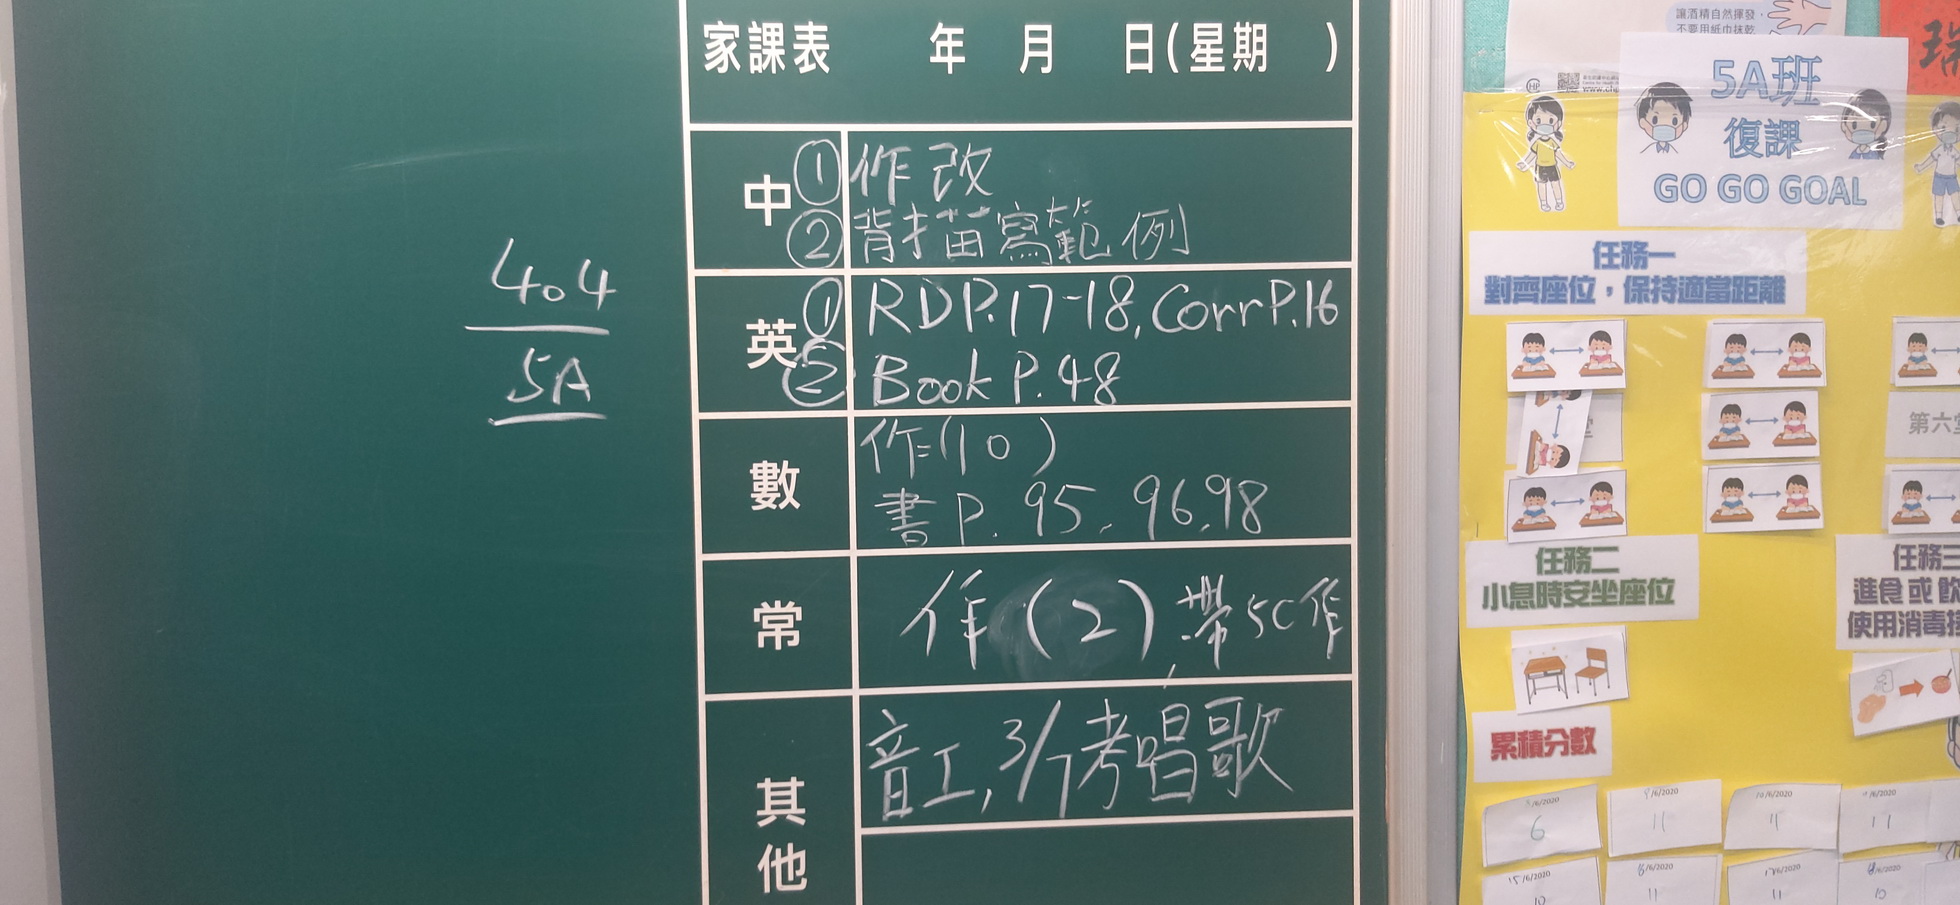 家課表 年 月 日(星期 )
中 ① 作改
② 背描寫範例
英 ① RD P.17-18, Corr P.16
② Book P.48
數 作(10)
書 P. 95, 96, 98
常 作(2), 帶5C作
其他 音工, 3/7考唱歌
404
5A
讓酒精自然揮發,
不要用紙巾抹乾
5A班
復課
GO GO GOAL
任務一
對齊座位,保持適當距離
第六
任務二
小息時安坐座位
任務三
進食或飲
使用消毒搓
累積分數
5/6/2020
6
9/6/2020
11
10/6/2020
11
/6/2020
11
15/6/2020
10
/6/2020
11
/6/2020
11
/6/2020
10